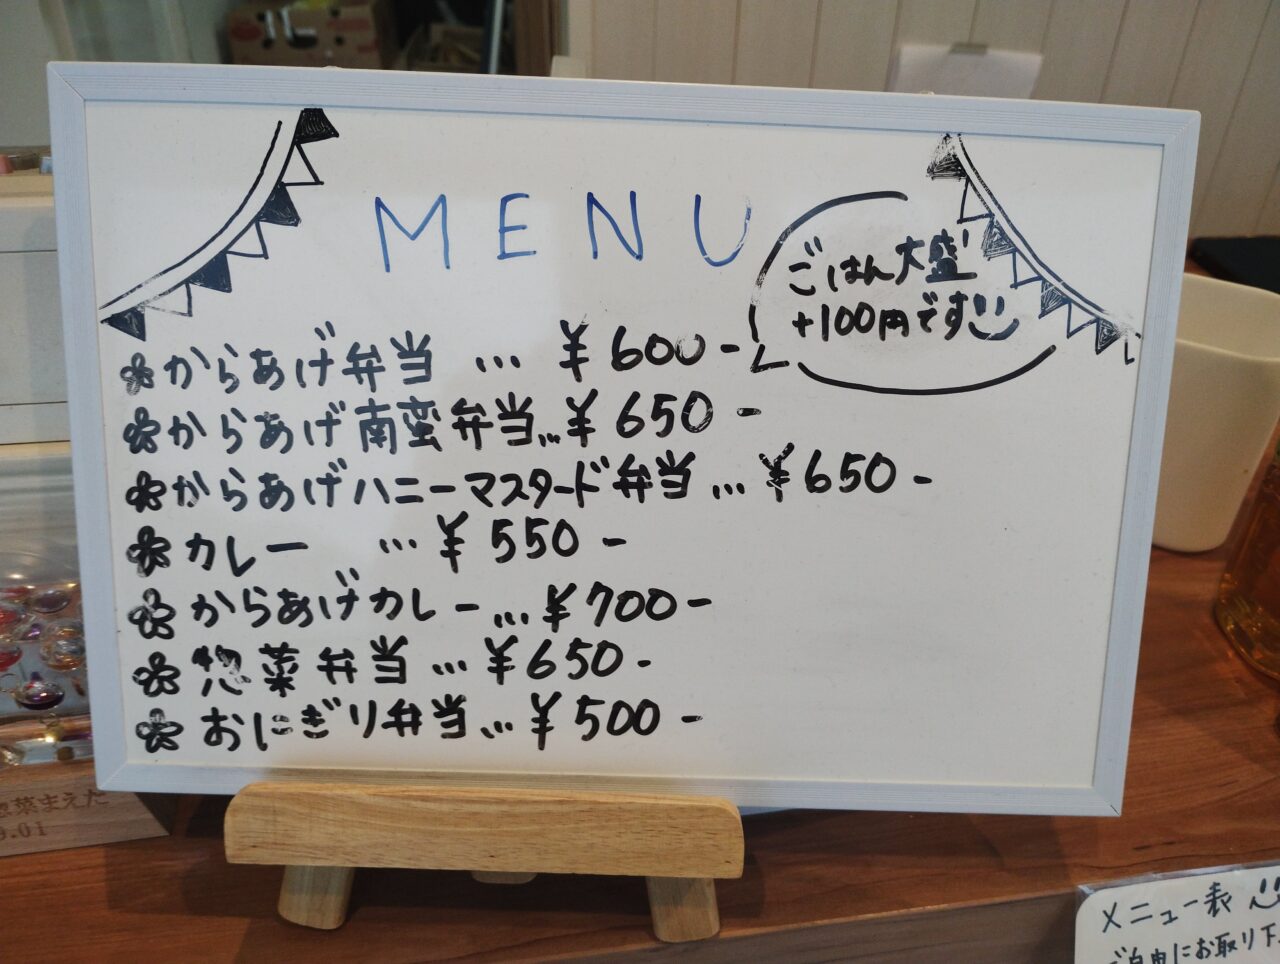 MENU
ごはん大盛
+100円です
からあげ弁当 … ¥600-
からあげ南蛮弁当…¥650-
からあげハニーマスタード弁当…¥650-
カレー …¥550-
からあげカレー…¥700-
惣菜弁当…¥650-
おにぎり弁当…¥500-
惣菜まえだ
9.01
メニュー表
ご自由にお取り下